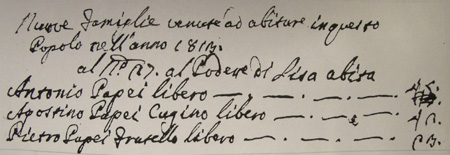 Nuove Famiglie venute ad abitare in questo
Popolo nell'anno 1813.
al N.o 17. al Podere di Lisa abita
Antonio Papei libero — . — . — . —
Agostino Papei Cugino libero — . — . —
Pietro Papei Fratello libero — . — . — . —